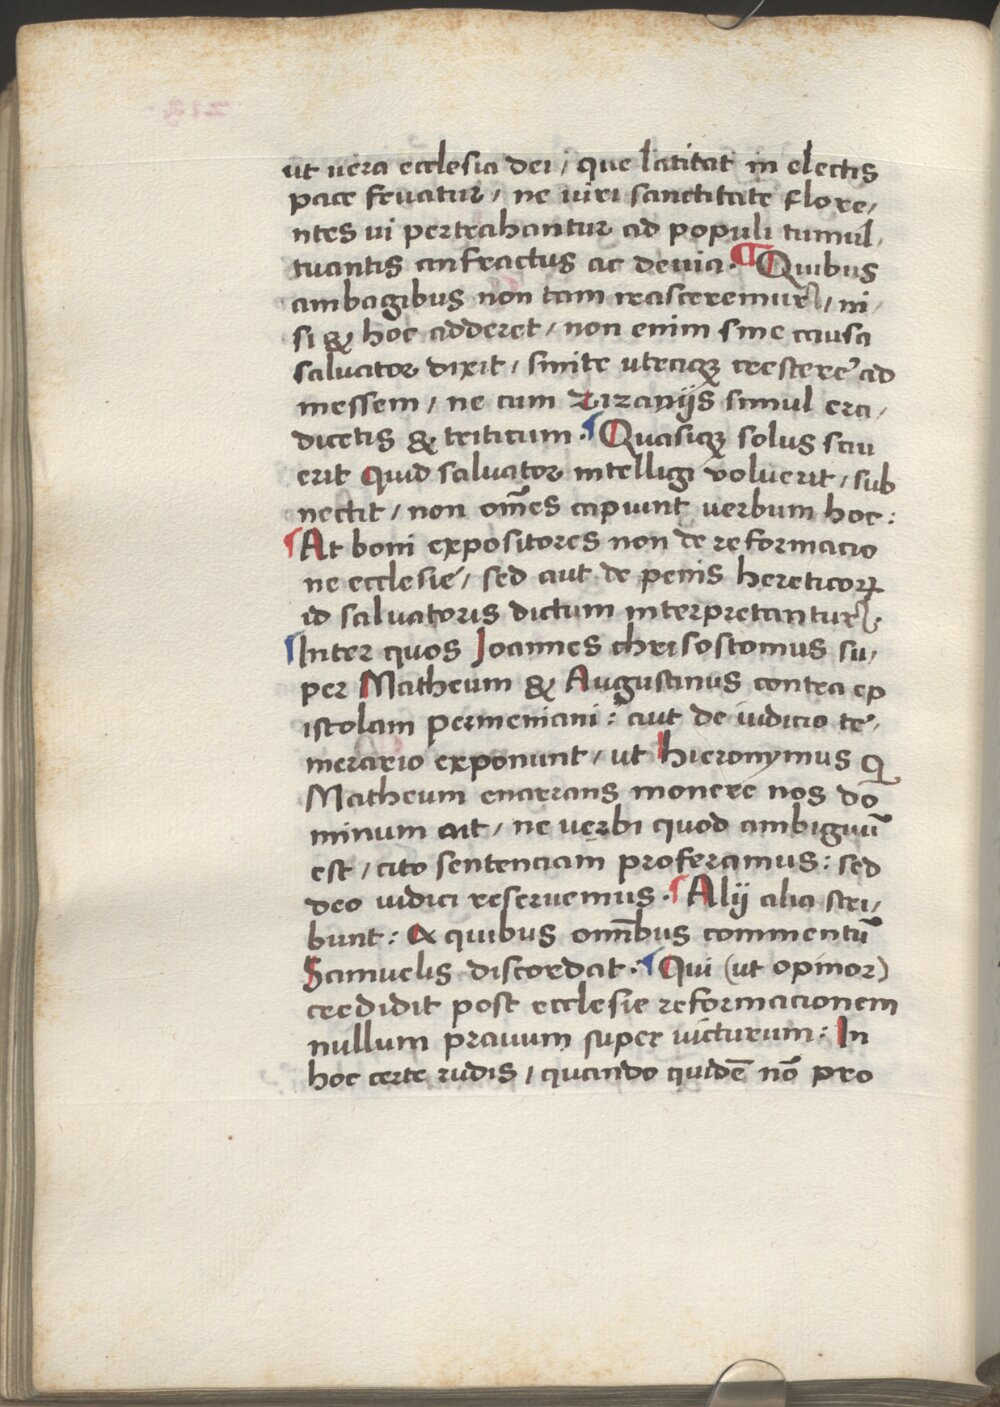 ut uera ecclesia dei / que latitat in electis
pace fruatur / ne uiri sanctitate flore/
ntes ui pertrahantur ad populi tumul/
tuantis anfractus ac deuia. ¶ Quibus
ambagibus non tam irasceremur / ni/
si & hoc adderet / non enim sine causa
saluator dixit / sinite utraqꝫ crescere ad
messem / ne cum zizanijs simul era/
dicetis & triticum. ¶ Quasiqꝫ solus sciu
erit Quid saluator intelligi voluerit / sub
nectit / non om̅es capiunt uerbum hoc:
¶ At boni expositores non de reformacio
ne ecclesie / sed aut de penis hereticoꝝ
id saluatoris dictum interpretantur.
¶ Inter quos Joannes chrisostomus su/
per Matheum & Augustinus contra ep
istolam permeniani: aut de iudicio te/
merario exponunt / ut hieronymus q
Matheum enarrans monere nos do
minum ait / ne uerbi quod ambiguū
est / cito sentenciam proferamus: sed
deo iudici reseruemus. ¶ Alij alia scri/
bunt: A quibus omībus commentū
Samuelis discordat. ¶ Qui (ut opinor)
credidit post ecclesie reformacionem
nullum prauum super uicturum: In
hoc certe rudis / quando quidē nō pro